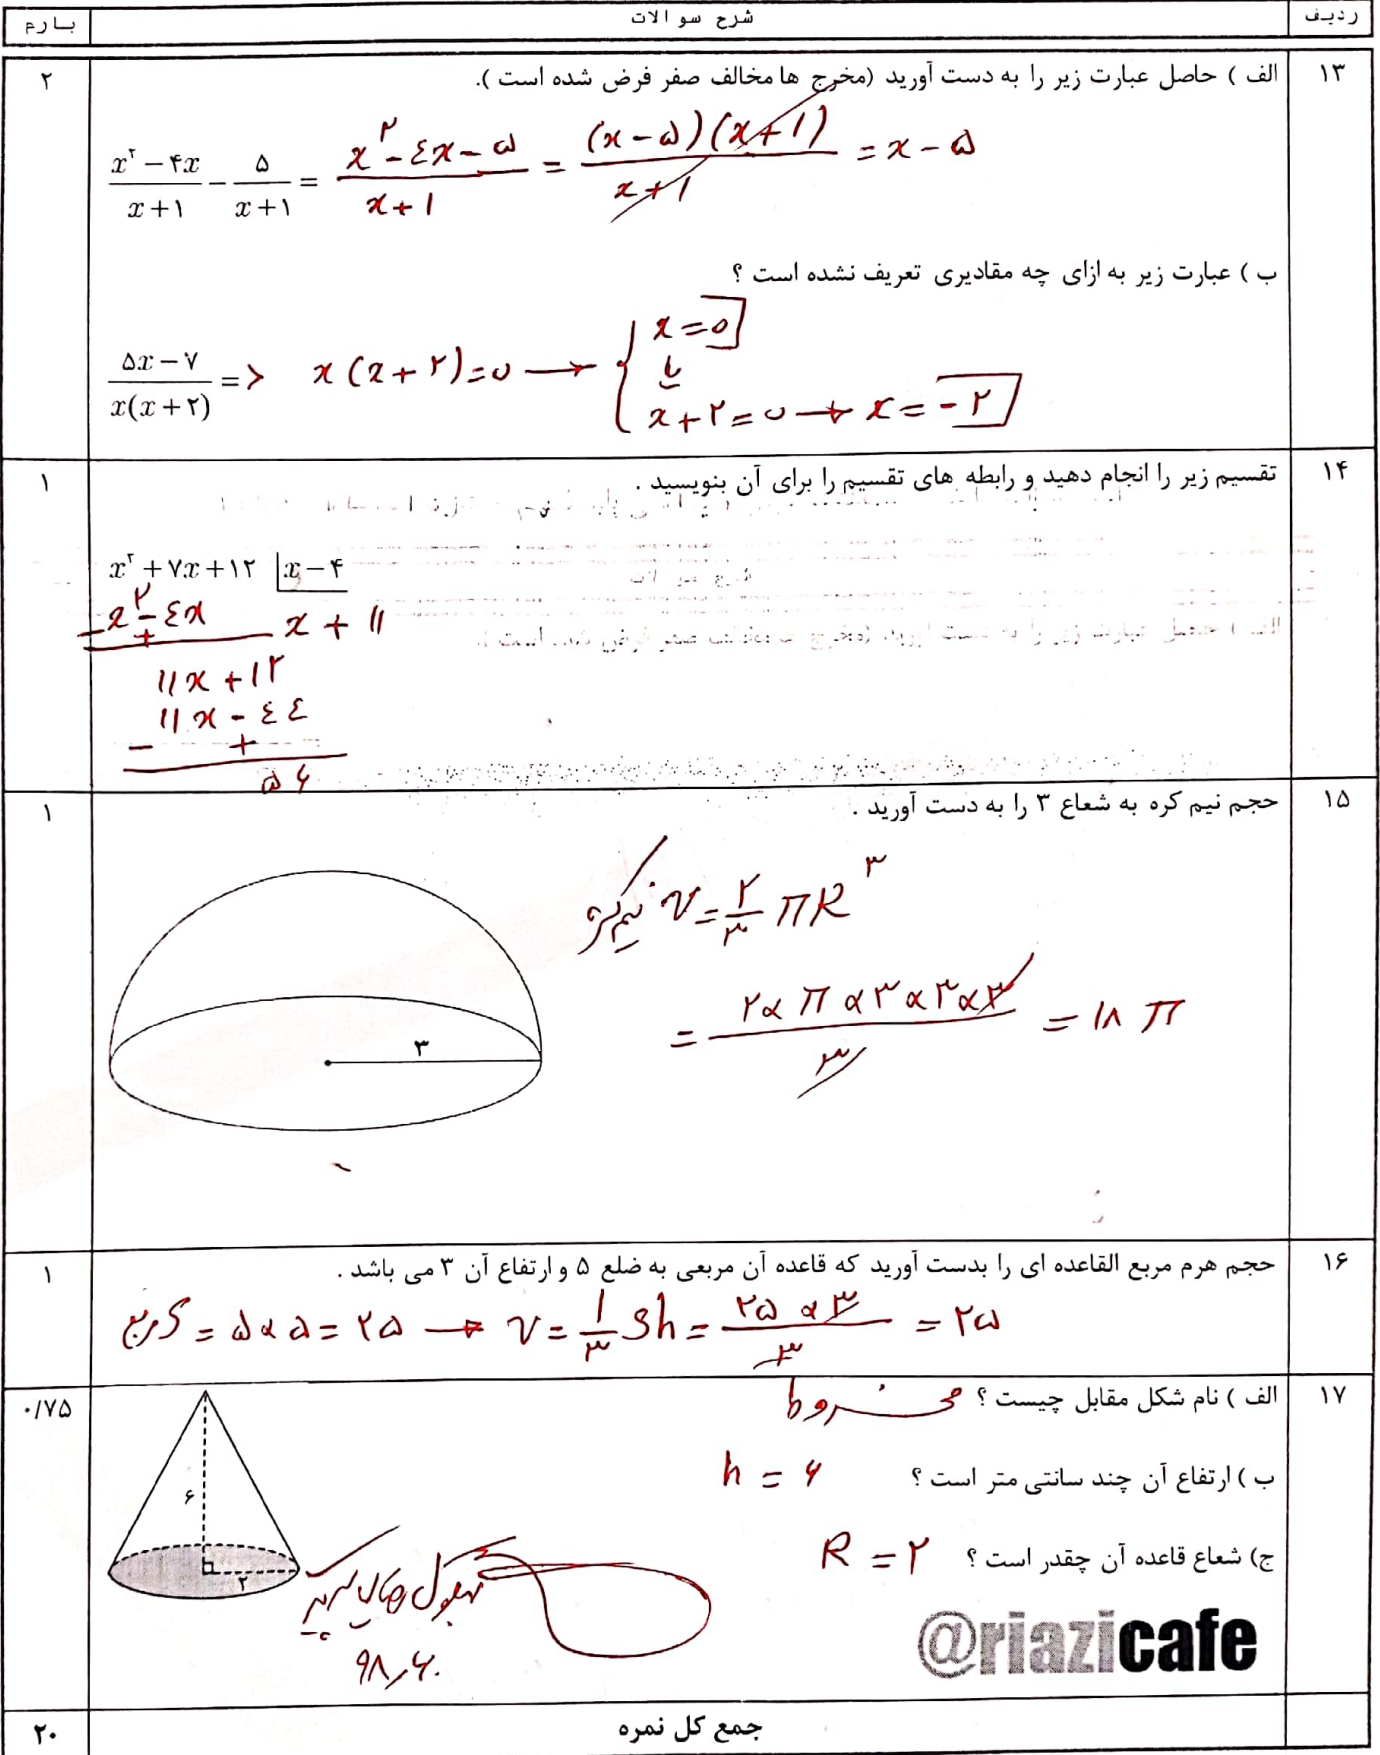 ردیف شرح سوالات بارم
۱۳ الف ) حاصل عبارت زیر را به دست آورید (مخرج ها مخالف صفر فرض شده است ). ۲
(x² − ۴x)/(x+۱) − ۵/(x+۱) = (x² − ٤x − ۵)/(x+۱) = (x − ۵)(x+۱)/(x+۱) = x − ۵
ب ) عبارت زیر به ازای چه مقادیری تعریف نشده است ؟
x = ۰
(۵x − ۷)/(x(x+۲)) => x(x+۲)=۰ → { یا
x+۲=۰ → x = −۲
۱۴ تقسیم زیر را انجام دهید و رابطه های تقسیم را برای آن بنویسید . ۱
x² + ۷x + ۱۲ | x − ۴
x² − ٤x x + ۱۱
− +
۱۱x + ۱۲
۱۱x − ٤٤
− +
۵۶
۱۵ حجم نیم کره به شعاع ۳ را به دست آورید . ۱
نیم‌کره V = ۲/۳ πR³
= (۲×π×۳×۳×۳)/۳ = ۱۸π
۳
۱۶ حجم هرم مربع القاعده ای را بدست آورید که قاعده آن مربعی به ضلع ۵ و ارتفاع آن ۳ می باشد . ۱
= ۵×۵ = ۲۵ → V = ۱/۳ Sh = (۲۵×۳)/۳ = ۲۵
۱۷ الف ) نام شکل مقابل چیست ؟ مخروط ۰/۷۵
ب ) ارتفاع آن چند سانتی متر است ؟ h = ۶
ج) شعاع قاعده آن چقدر است ؟ R = ۲
۶
۲
@riazicafe
جمع کل نمره ۲۰